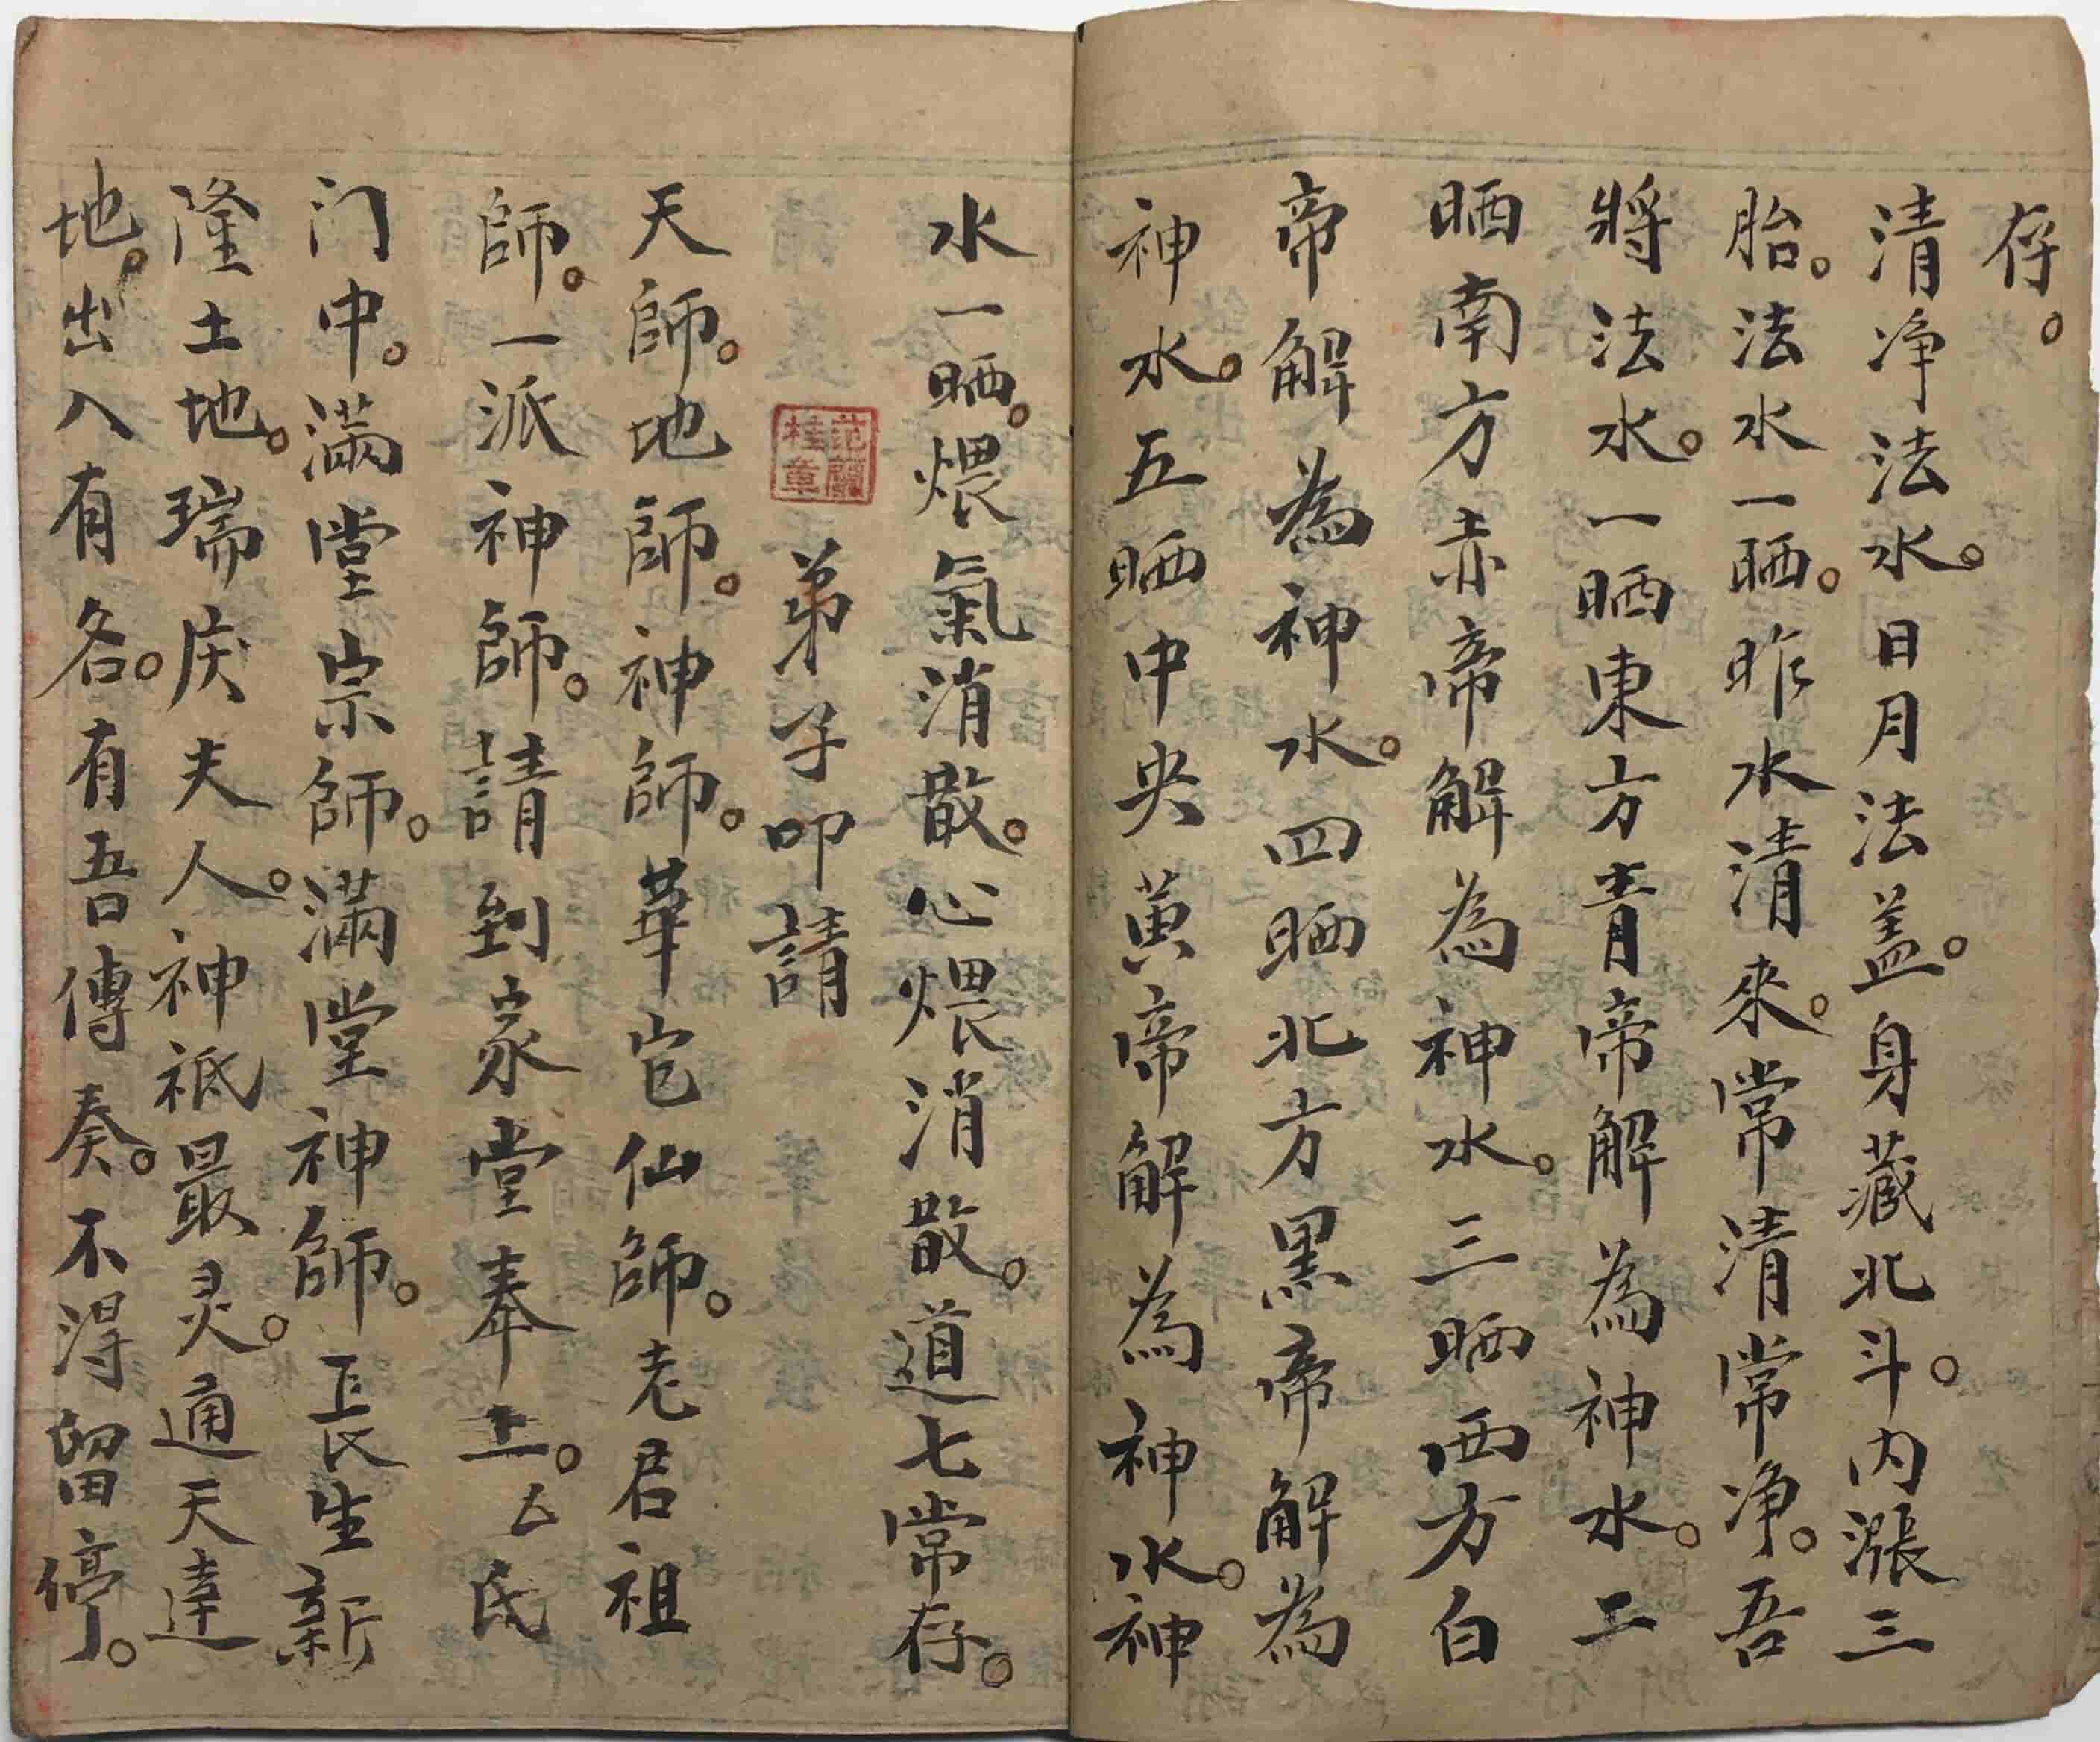 存。
清净法水。日月法盖。身藏北斗。内漲三
胎。法水一晒。昨水清來。常清常净。吾
將法水。一晒東方青帝解為神水。二
晒南方赤帝解為神水。三晒西方白
帝解為神水。四晒北方黑帝解為
神水。五晒中央黄帝解為神水。神
水一晒。煨氣消散。心煨消散。道七常存。
范蘭桂章
弟子叩請
天師。地師。神師。華宅仙師。老君祖
師。一派神師。請到家堂奉主。厶氏
门中。滿堂宗師。滿堂神師。長生新
隆土地。瑞庆夫人。神祇最灵。通天達
地。出入有各。有吾傳奏。不得留停。